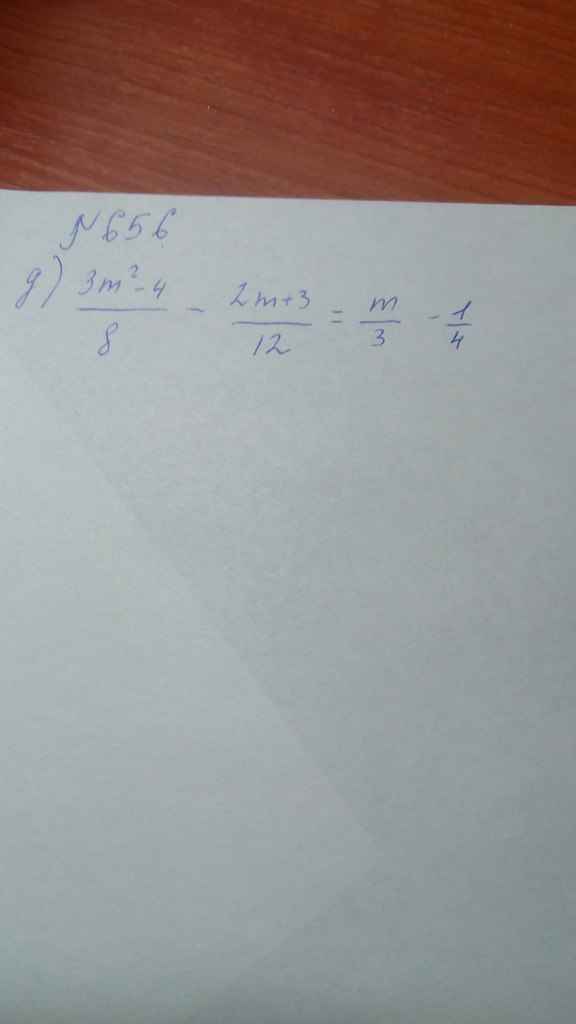 №656
д) \frac{3m²-4}{8} - \frac{2m+3}{12} = \frac{m}{3} - \frac{1}{4}